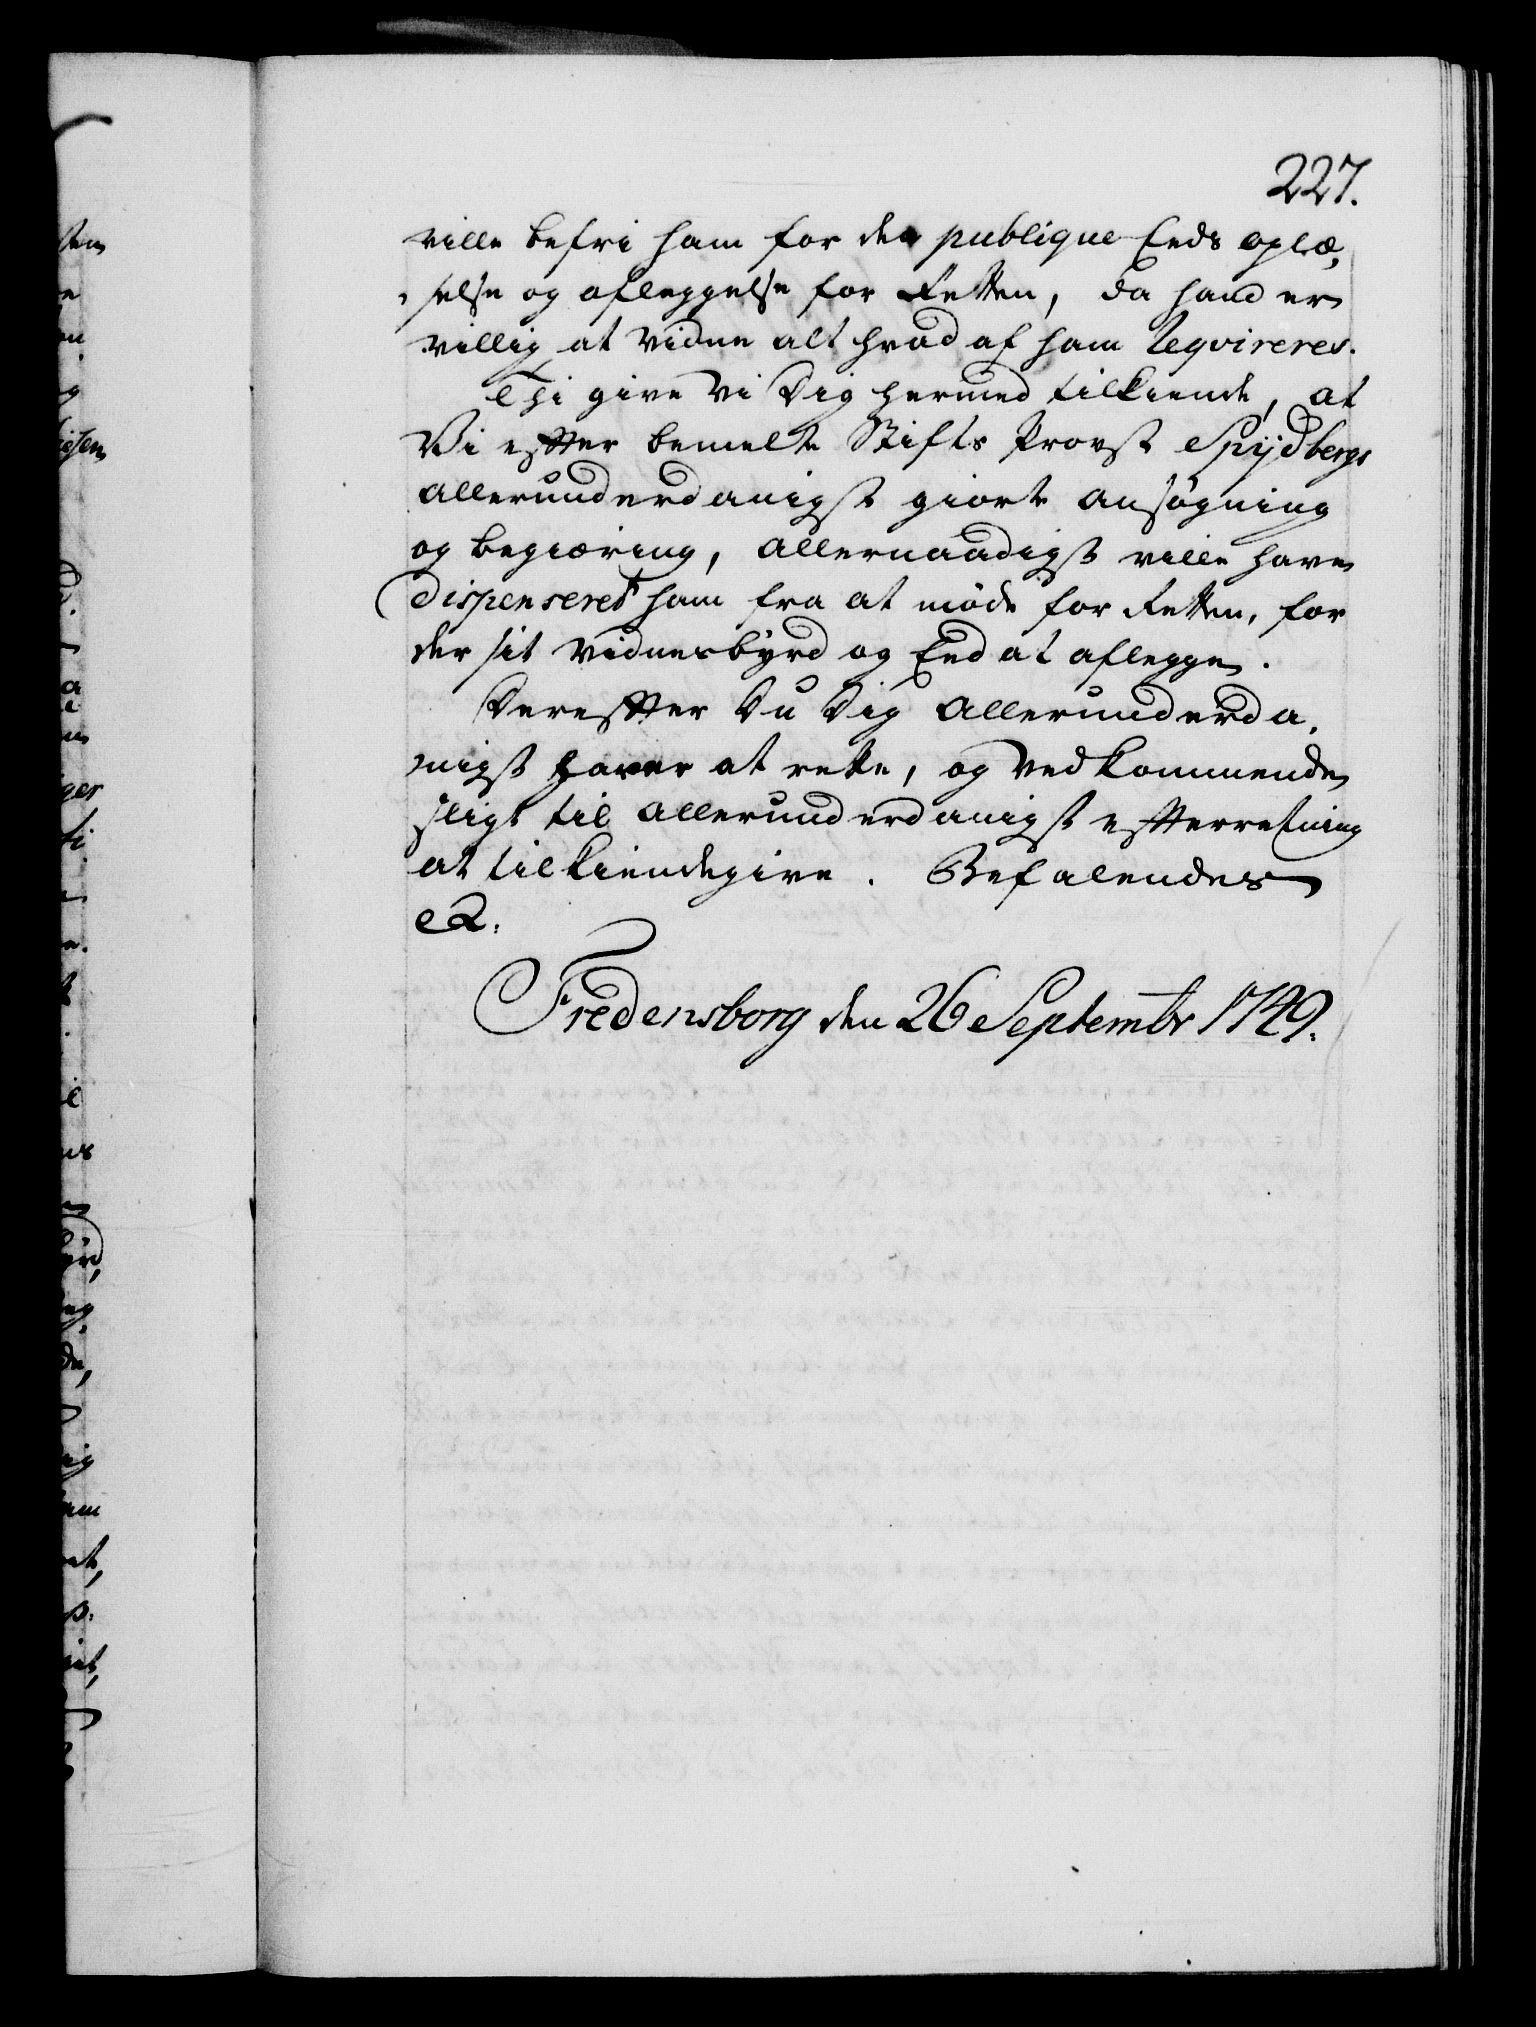 227.
ville befri ham for den publique Eeds oplæ,
selse og afleggelse for Retten, da hand er
villig at vidne alt hvad af ham Reqvireres.
Thi give Vi Dig hermed tilkiende, at
Vi efter bemelte Stifts Provst Spijdbergs
allerunderdanigst giorte ansøgning
og begiæring, allernaadigst ville have
Dispenseret ham fra at møde for Retten, for
der sit vidnesbyrd og Eed at aflegge.
Derefter Du Dig allerunderda,
nigst haver at rette, og vedkommende
sligt til allerunderdanigst efterretning
at tilkiendegive. Befalendes
etc.
Fredensborg den 26 Septembr 1749.